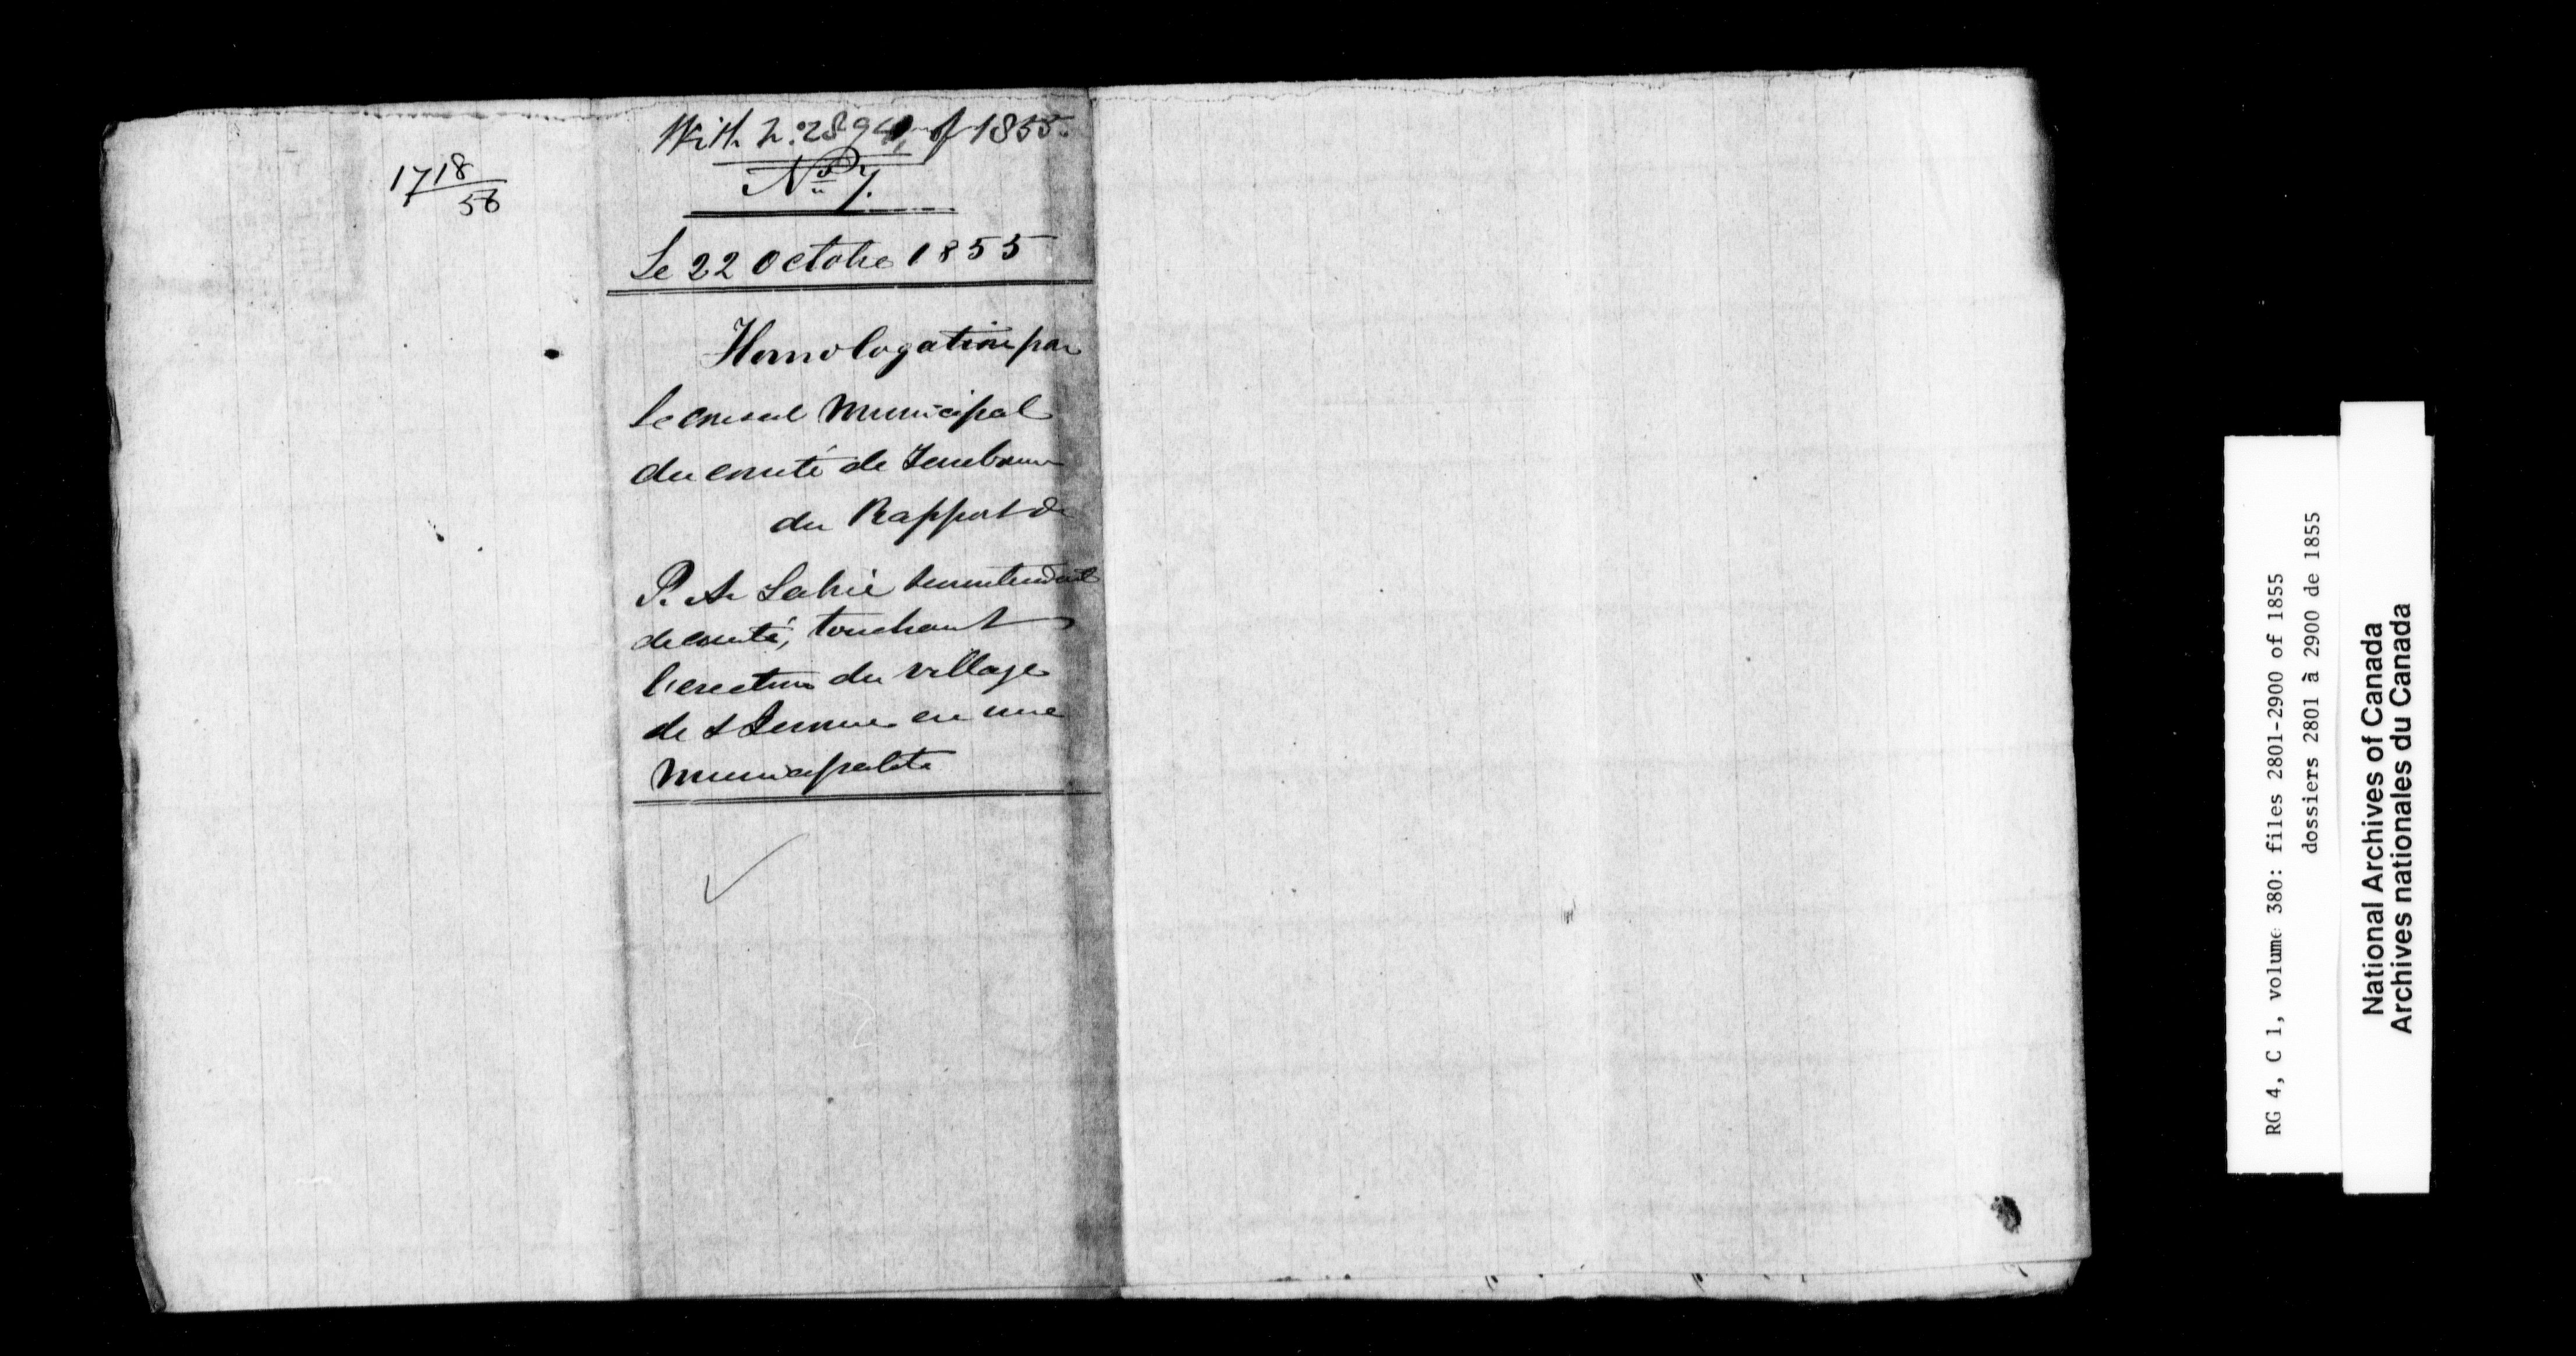 1718/56
With N.º 2894 of 1855.
Nº 7.
Le 22 Octobre 1855
Homologation par
le conseil Municipal
du comté de Terrebonne
du Rapport de
P. A. Labrie surintendant
de comté, touchant
l'erection du village
de St Jerome en une
Municipalité
RG 4, C 1, volume 380: files 2801-2900 of 1855
dossiers 2801 à 2900 de 1855
National Archives of Canada
Archives nationales du Canada